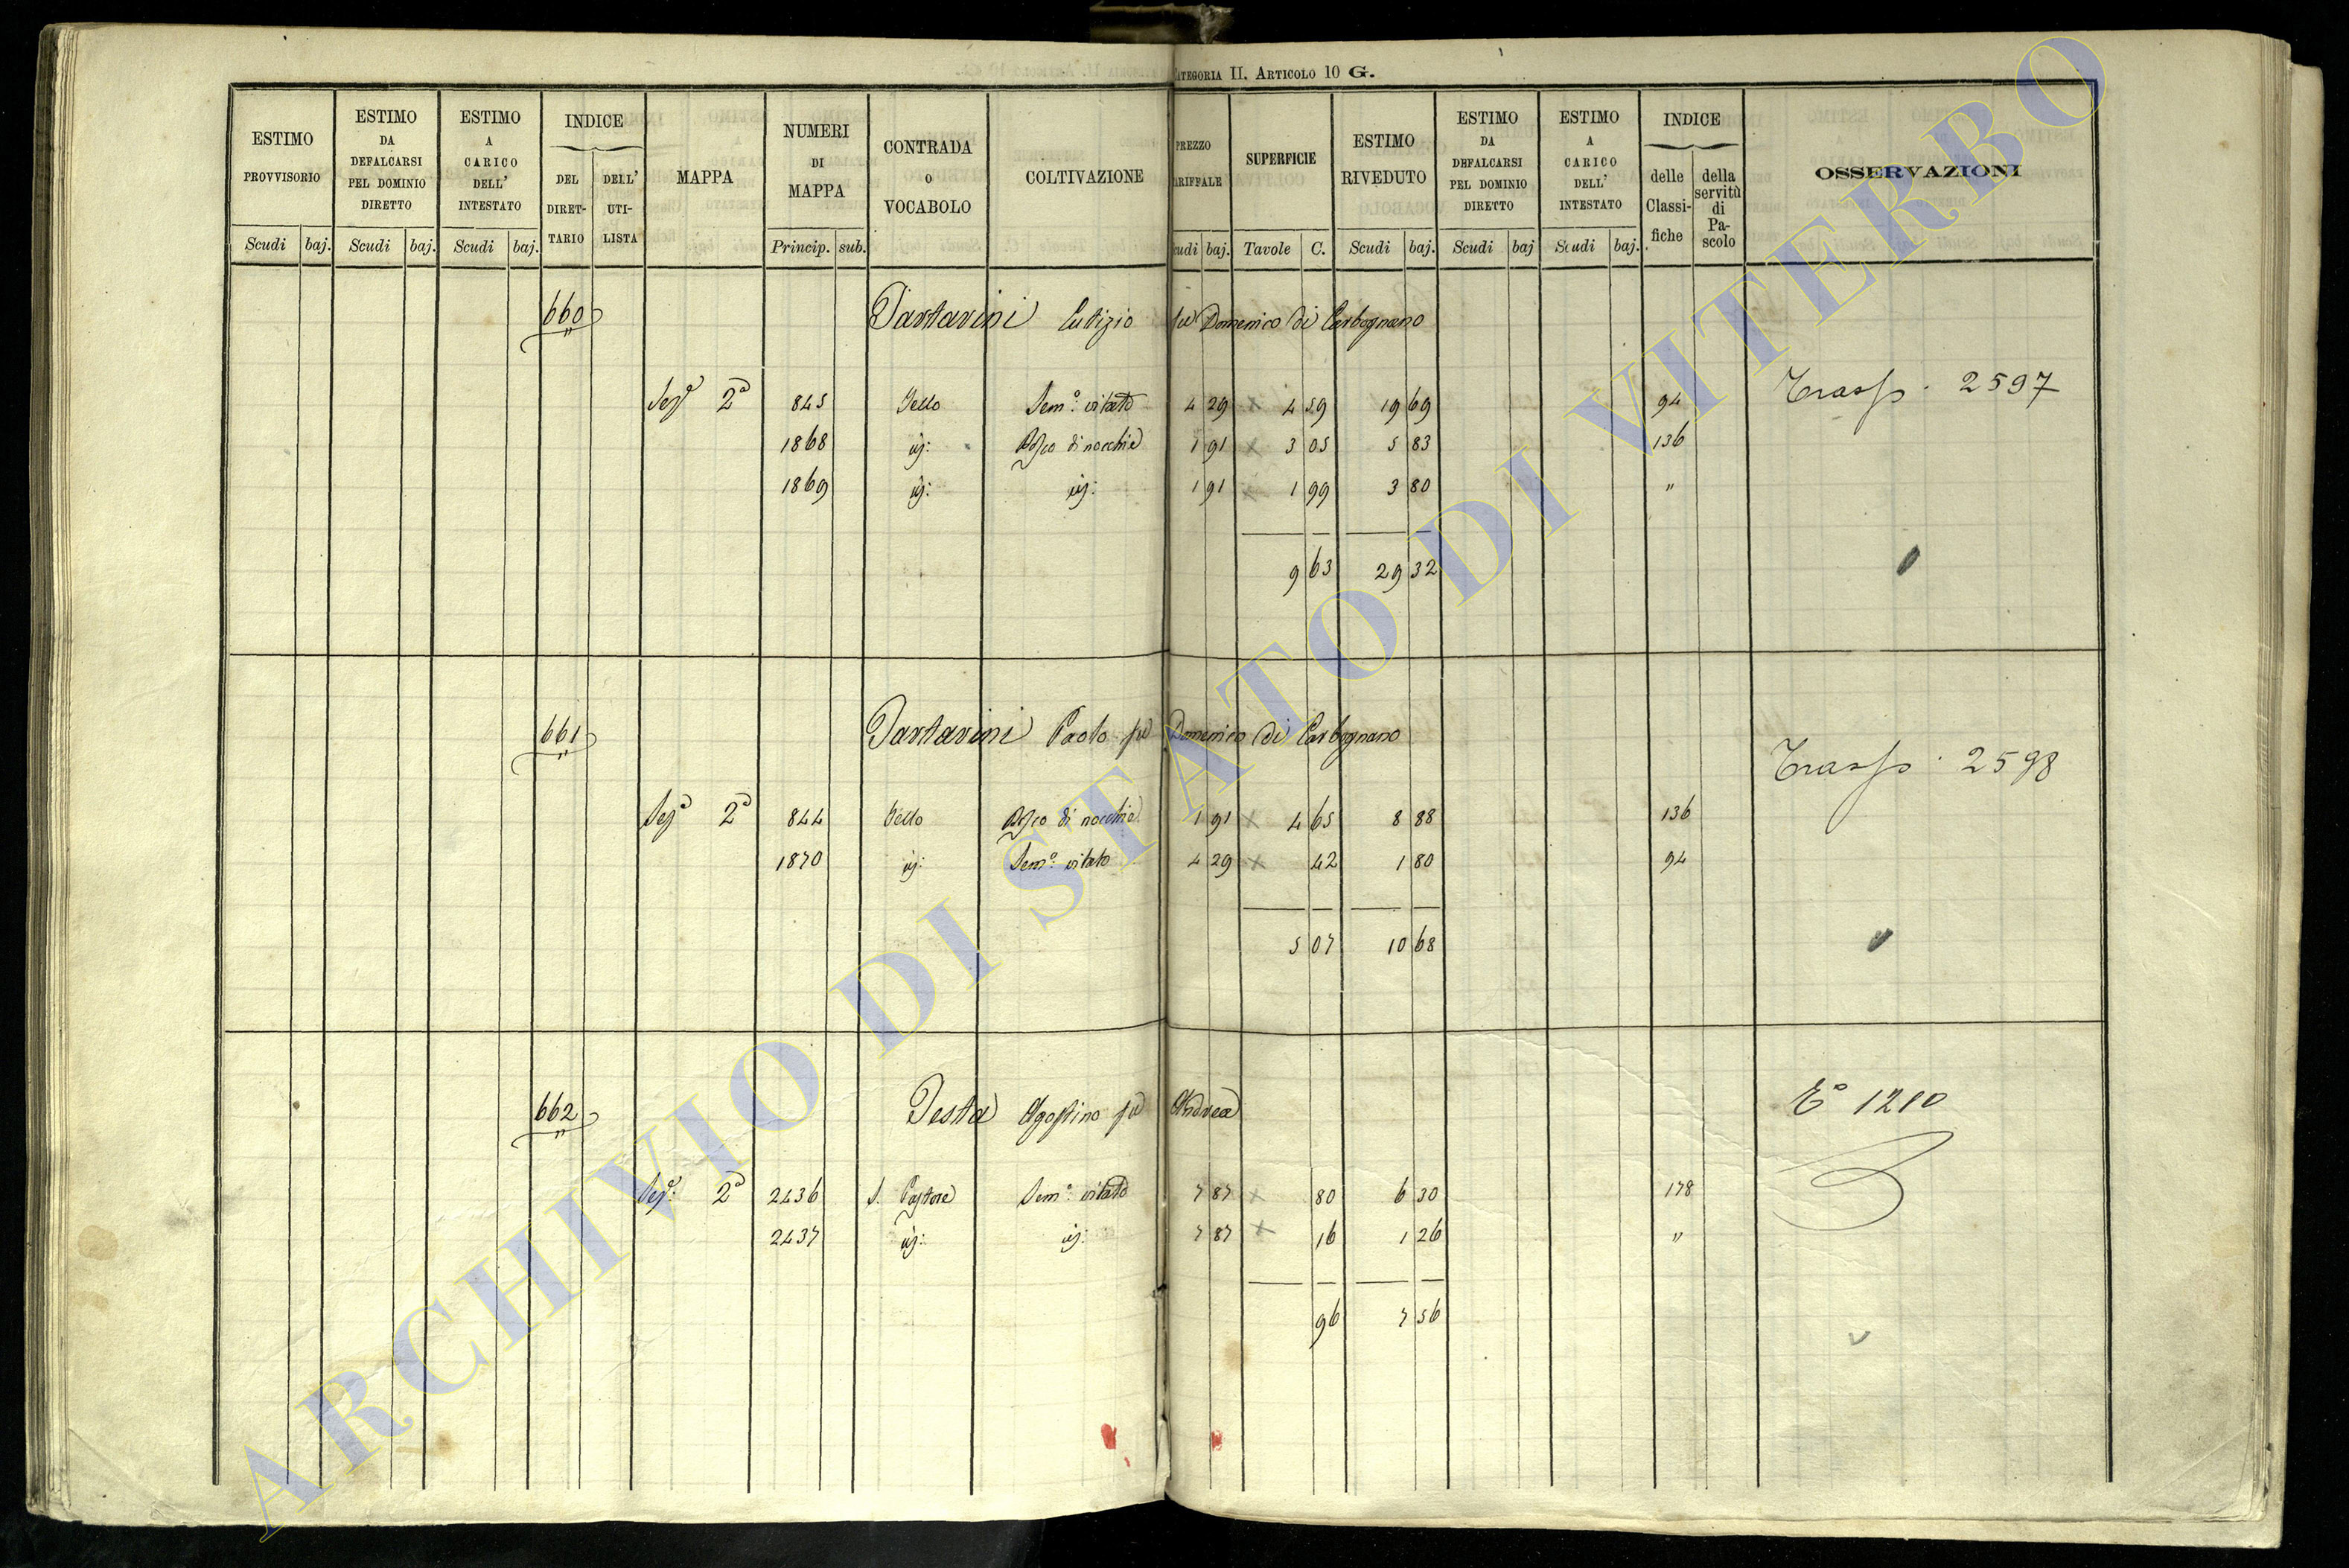 CATEGORIA II. ARTICOLO 10 G.
ESTIMO PROVVISORIO Scudi baj.
ESTIMO DA DEFALCARSI PEL DOMINIO DIRETTO Scudi baj.
ESTIMO A CARICO DELL' INTESTATO Scudi baj.
INDICE DEL DIRET- TARIO DELL' UTI- LISTA
MAPPA
NUMERI DI MAPPA Princip. sub.
CONTRADA O VOCABOLO
COLTIVAZIONE
PREZZO TARIFFALE Scudi baj.
SUPERFICIE Tavole C.
ESTIMO RIVEDUTO Scudi baj.
ESTIMO DA DEFALCARSI PEL DOMINIO DIRETTO Scudi baj
ESTIMO A CARICO DELL' INTESTATO Scudi baj.
INDICE delle Classi- fiche della servitù di Pa- scolo
OSSERVAZIONI
660 Tartarini Eutizio fu Domenico di Carbognano
Sez.e 2a 845 Tello Sem.o vitato 4 29 x 4 59 19 69 94 Trasp. 2597
1868 id: Bosco di nocchie 1 91 x 3 05 5 83 136
1869 id: id: 1 91 x 1 99 3 80 "
9 63 29 32
661 Tartarini Paolo fu Domenico di Carbognano
Trasp. 2598
Sez.e 2a 844 Tello Bosco di nocchie 1 91 x 4 65 8 88 136
1870 id: Sem.o vitato 4 29 x 42 1 80 94
5 07 10 68
662 Testa Agostino fu Andrea
Eo 1210
Sez.e 2a 2436 S. Pastore Sem.o vitato 7 87 x 80 6 30 178
2437 id: id: 7 87 x 16 1 26 "
96 7 56
ARCHIVIO DI STATO DI VITERBO